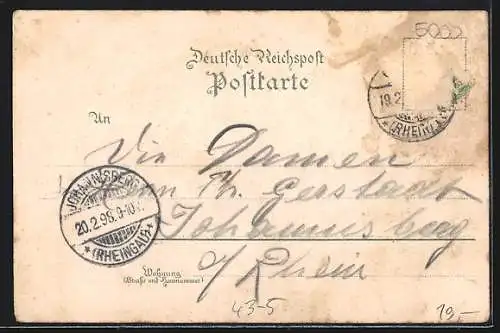 5000
Deutsche Reichspost
Postkarte
19.2
*(RHEINGAU)*
An
Die Damen
Th. Gerstadt
Johannisberg
a/Rhein
JOHANNISBERG
20.2.98.9-10
*(RHEINGAU)*
Wohnung
(Straße und Hausnummer)
43-5
19,-